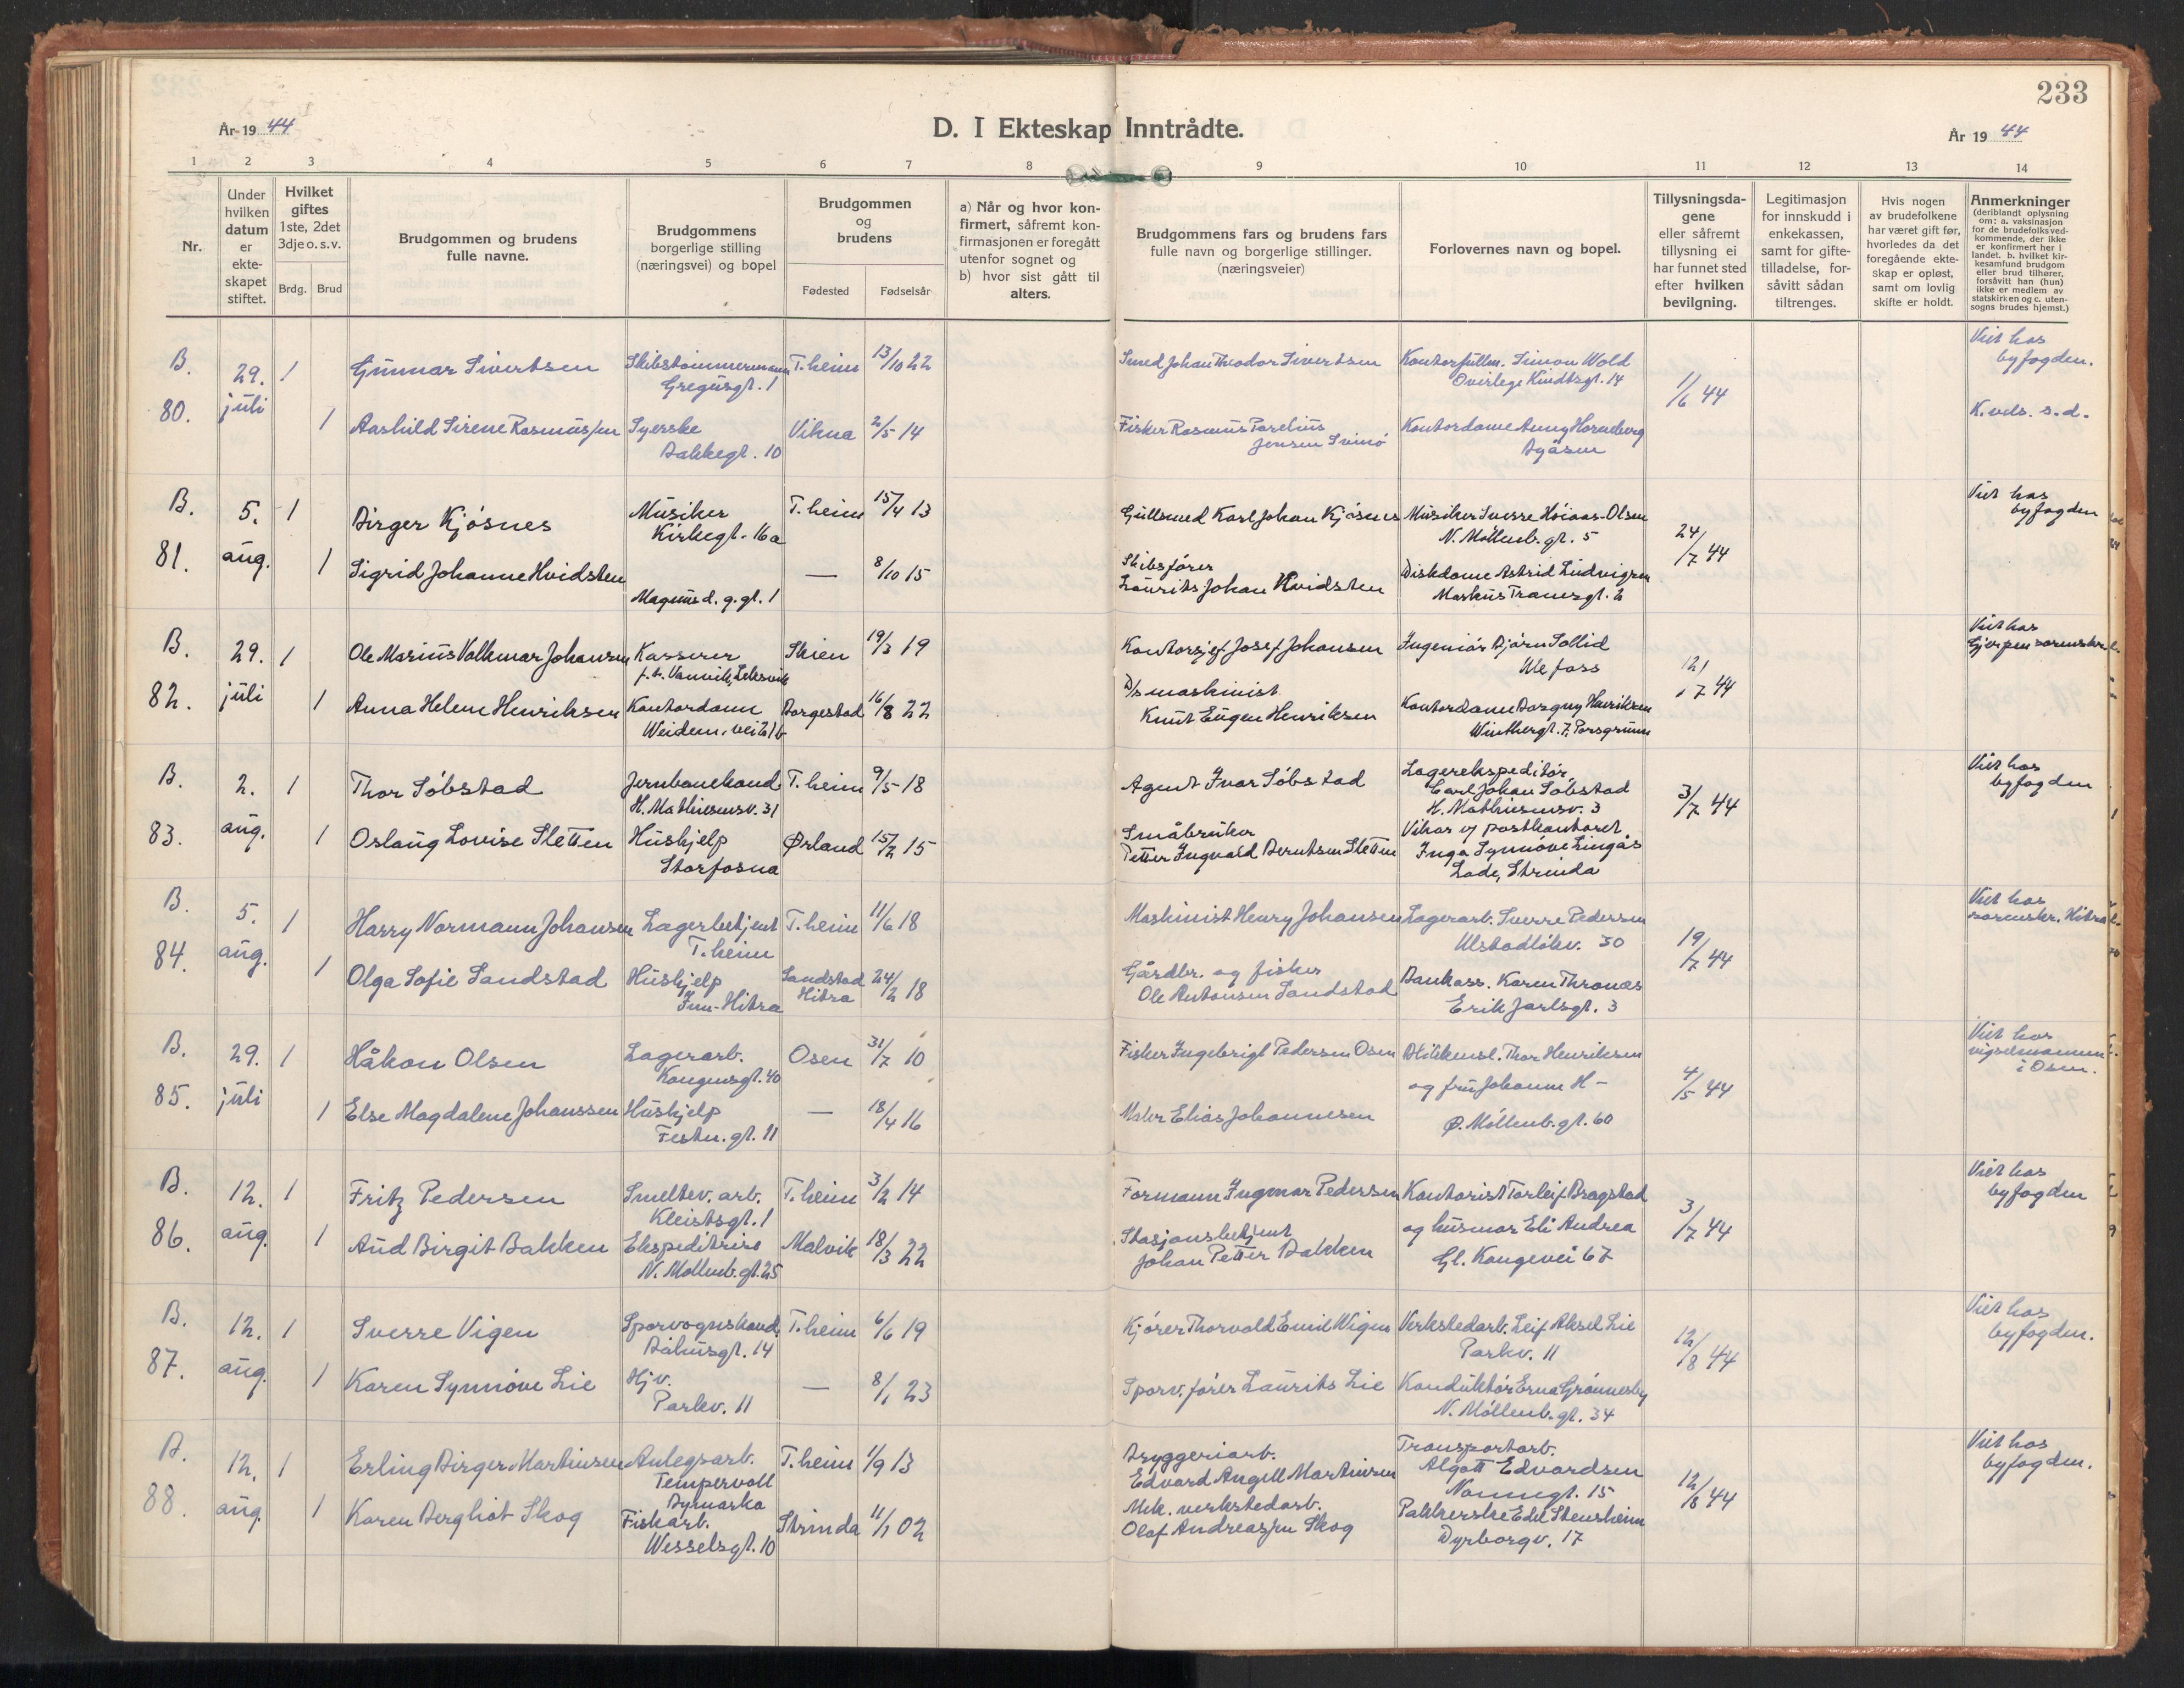 233
År 19 44
D. I Ekteskap Inntrådte.
År 19 44
1 2 3 4 5 6 7 8 9 10 11 12 13 14
Nr.
Under hvilken datum er ekte-skapet stiftet.
Hvilket giftes 1ste, 2det 3dje o.s.v.
Brdg. Brud
Brudgommen og brudens fulle navne.
Brudgommens borgerlige stilling (næringsvei) og bopel
Brudgommen og brudens
Fødested Fødselsår
a) Når og hvor kon-firmert, såfremt kon-firmasjonen er foregått utenfor sognet og b) hvor sist gått til alters.
Brudgommens fars og brudens fars fulle navn og borgerlige stillinger. (næringsveier)
Forlovernes navn og bopel.
Tillysningsda-gene eller såfremt tillysning ei har funnet sted efter hvilken bevilgning.
Legitimasjon for innskudd i enkekassen, samt for gifte-tilladelse, for-såvitt sådan tiltrenges.
Hvis nogen av brudefolkene har været gift før, hvorledes da det foregående ekte-skap er opløst, samt om lovlig skifte er holdt.
Anmerkninger (deriblandt oplysning om: a. vaksinasjon for de brudefolksved-kommende, der ikke er konfirmert her i landet. b. hvilket kir-kesamfund brudgom eller brud tilhører, forsåvitt han (hun) ikke er medlem av statskirken og c. uten-sogns brudes hjemst.)
B. 80. 29. juli
1 Gunnar Sivertsen Skibstømmermann Gregusgt. 1 T.heim 13/10 22
Smed Johan Theodor Sivertsen Kontorfullm. Simon Wold Overlege Kindtsgt. 14
1/6 44
Viet hos byfogden.
1 Aashild Sirene Rasmussen Syerske Bakkegt. 10 Vikna 2/5 14
Fisker Rasmus Parelius Jensen Svinø Kontordame Aung Horneberg Byåsen
K.vds. s.d.
B. 81. 5. aug.
1 Birger Kjøsnes Musiker Kirkegt. 16a T.heim 15/4 13
Gullsmed Karl Johan Kjøsnes Musiker Sverre Hoiaas-Olsen N. Møllenb. gt. 5
24/7 44
Viet hos byfogden
1 Sigrid Johanne Hvidsten Magnus d. g. gt. 1 — 8/10 15
Skibsfører Laurits Johan Hvidsten Diskdame Astrid Ludvigsen Markus Tranesgt. 2
B. 82. 29. juli
1 Ole Marius Valkmar Johansen Kasserer f.t. Vanvik, Leksvik Skien 19/3 19
Kontorsjef Josef Johansen Ingeniør Bjørn Sollid Ulefoss
12/7 44
Viet hos Gjerpen sorenskr.
1 Anna Helene Henriksen Kontordame Weidem. vei 21b Borgestad 16/8 22
D/s maskinist Knut Eugen Henriksen Kontordame Dagny Henriksen Winthergt. 7, Porsgrunn
B. 83. 2. aug.
1 Thor Søbstad Jernbanekond. H. Mathiesensv. 31 T.heim 9/5 18
Agent Ivar Søbstad Lagerekspeditør Carl Johan Søbstad H. Mathiesensv. 3
3/7 44
Viet hos byfogden
1 Oslaug Lovise Sletten Hushjelp Storfosna Ørland 15/2 15
Småbruker Petter Ingvald Berntsen Sletten Vikar v/ postkontoret Inga Synnøve Lingås Lade, Strinda
B. 84. 5. aug.
1 Harry Normann Johansen Lagerbetjent T.heim T.heim 11/6 18
Maskinist Henry Johansen Lagerarb. Sverre Pedersen Ulstadløkv. 30
19/7 44
Viet hos sorenskr. Hitra
1 Olga Sofie Sandstad Hushjelp Inn-Hitra Sandstad Hitra 24/2 18
Gårdbr. og fisker Ole Antonsen Sandstad Bankass. Karen Thronæs Erik Jarlsgt. 3
B. 85. 29. juli
1 Håkon Olsen Lagerarb. Kongensgt. 40 Osen 31/7 10
Fisker Ingebrigt Pedersen Osen Blikkensl. Thor Henriksen
4/5 44
Viet hos vigselmannen i Osen.
1 Else Magdalene Johanssen Hushjelp Festn. gt. 11 — 18/4 16
Maler Elias Johannesen og fru Johanne H – Ø. Møllenb. gt. 60
B. 86. 12. aug.
1 Fritz Pedersen Smeltev. arb. Kleistsgt. 1 T.heim 3/2 14
Formann Ingmar Pedersen Kontorist Torleif Bragstad
3/7 44
Viet hos byfogden
1 Aud Birgit Bakken Ekspeditrise N. Møllenb. gt. 25 Malvik 18/3 22
Stasjonsbetjent Johan Petter Bakken og husmor Eli Andrea Gl. Kongevei 67
B. 87. 12. aug.
1 Sverre Vigen Sporvognskond. Båhusgt. 14 T.heim 6/6 19
Kjører Thorvald Emil Wigen Verkstedarb. Leif Aksel Lie Parkv. 11
12/8 44
Viet hos byfogden.
1 Karen Synnøve Lie Hjv. Parkv. 11 — 8/1 23
Sporv. fører Laurits Lie Konduktør Erna Grønnesby N. Møllenb. gt. 34
B. 88. 12. aug.
1 Erling Birger Martinsen Anlegsarb. Tempervoll Bymarka T.heim 1/9 13
Bryggeriarb. Edvard Angell Martinsen Transportarb. Algott Edvardsen Nonnegt. 15
12/8 44
Viet hos byfogden.
1 Karen Bergliot Skog Fiskarb. Wesselsgt. 10 Strinda 11/1 02
Mek. verkstedarb. Olaf Andreassen Skog Pakkerske Edel Stensheim Dyrborgv. 17